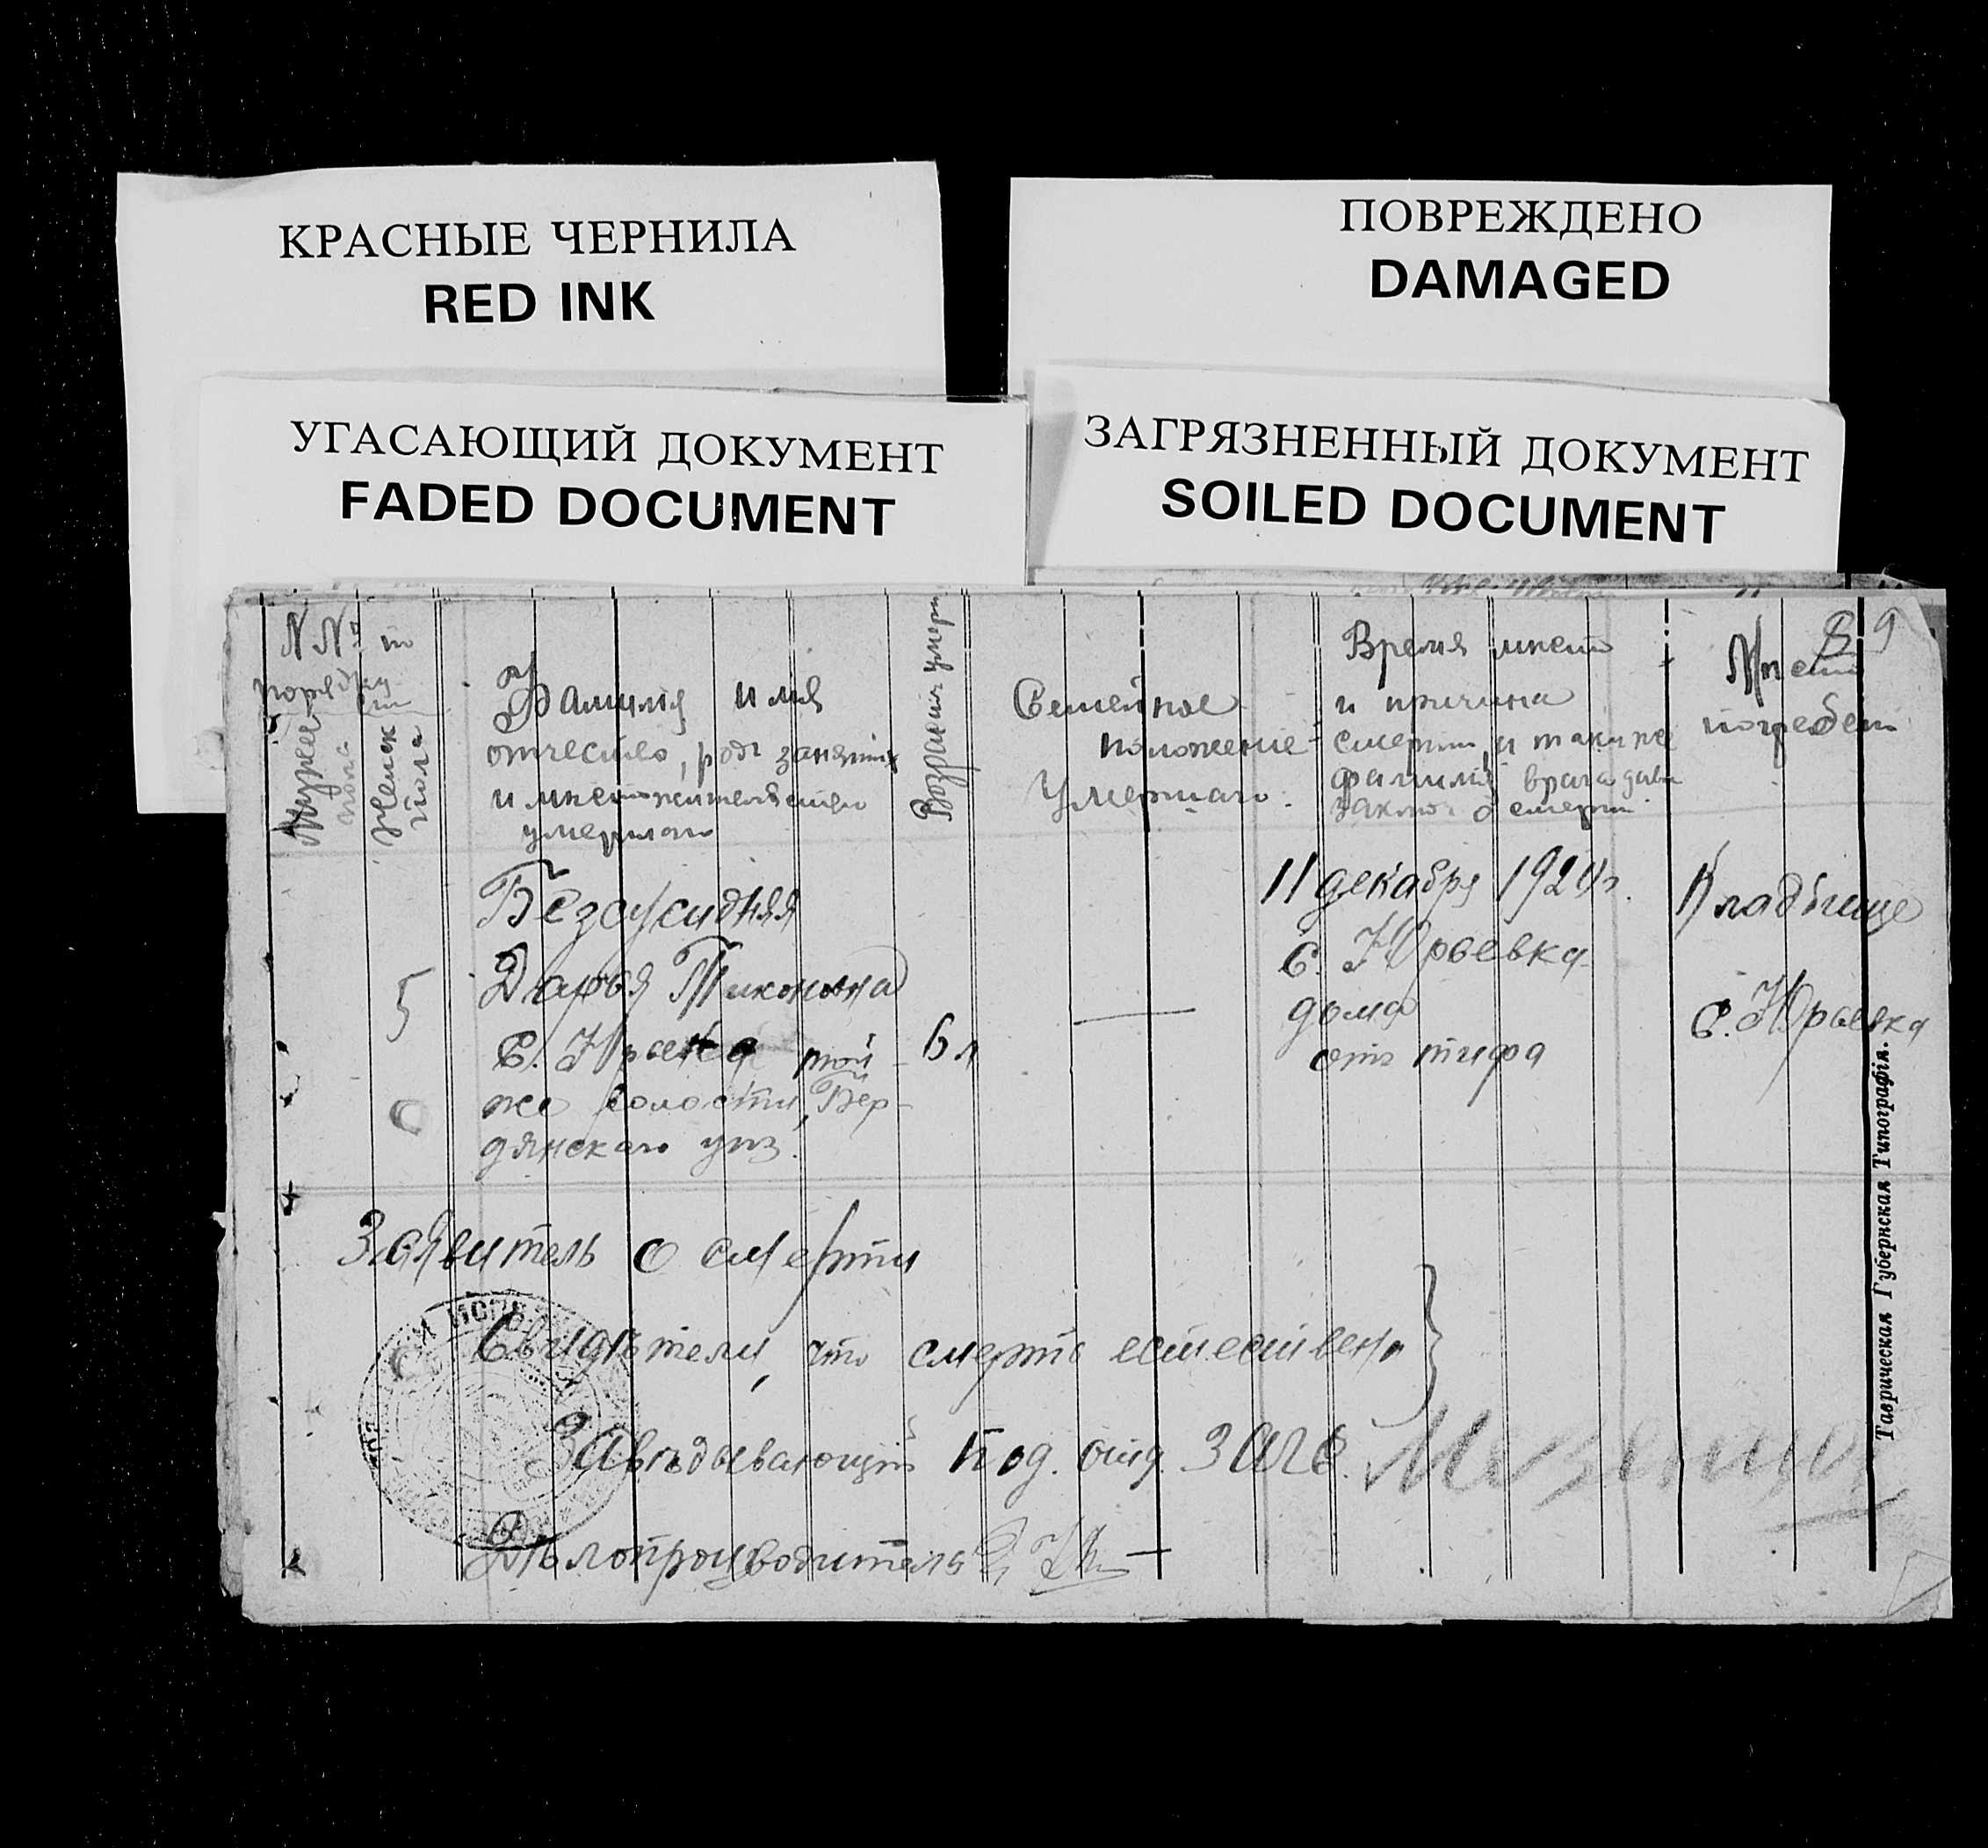 КРАСНЫЕ ЧЕРНИЛА
RED INK
ПОВРЕЖДЕНО
DAMAGED
УГАСАЮЩИЙ ДОКУМЕНТ
FADED DOCUMENT
ЗАГРЯЗНЕННЫЙ ДОКУМЕНТ
SOILED DOCUMENT
9
N Nо по
порядку
Мужск
пола
Женск
пола
Фамилия имя
отчество, родъ занятия
и мѣстожительство
умершаго
Возрастъ умерш
Семейное
положеніе
умершаго
Время мѣсто
и причина
смерти и также
фамилія врача давш
заключ о смерти
Мѣсто
погребен
5
Безсусидняя
Дарья Тихоновна
С. Юрьевка той
же волости, Бер-
дянскаго уѣз.
6 л
—
11 декабря 1920 г.
С. Юрьевка
дома
отъ тифа
Кладбище
С. Юрьевка
Заявитель о смерти
Свидѣтели, что смерть естествен
Завѣдывающій Под. отд. ЗАГС.
Дѣлопроизводитель
Таврическая Губернская Типографія.